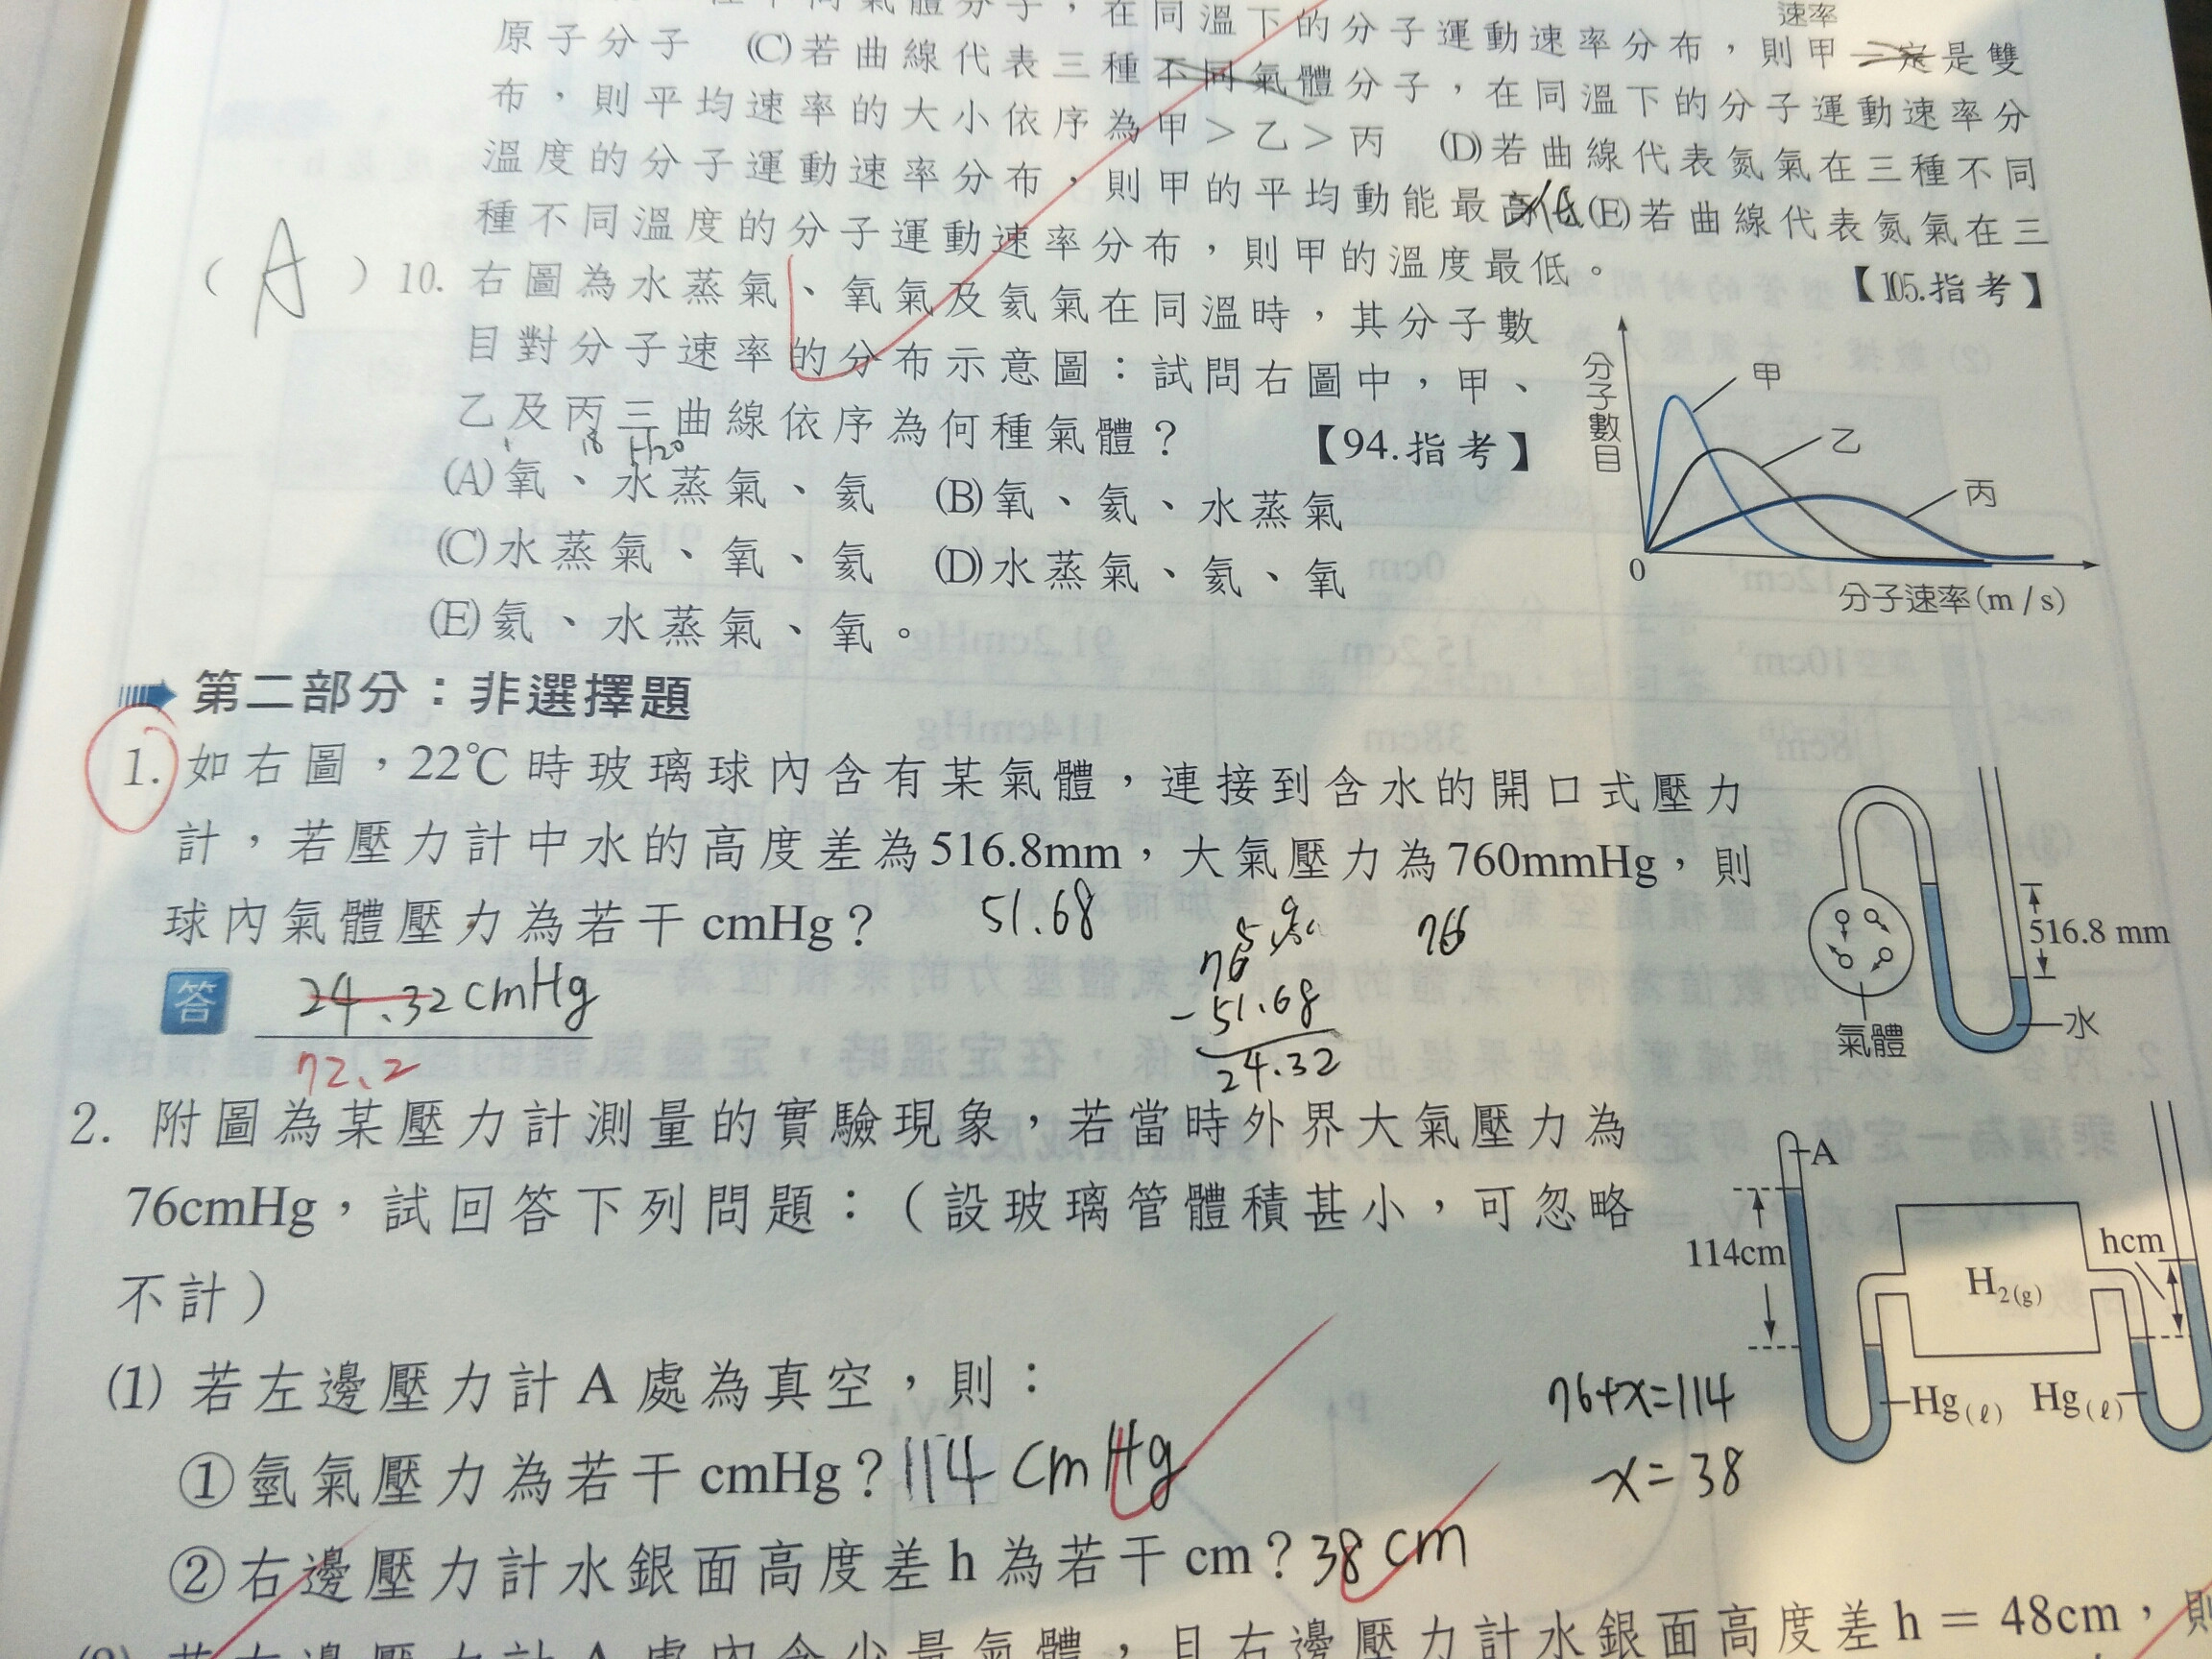 同氣體分子，在同溫下的分子運動速率分布，則甲一定是雙
速率
原子分子 (C)若曲線代表三種不同氣體分子，在同溫下的分子運動速率分
布，則平均速率的大小依序為甲＞乙＞丙 (D)若曲線代表氮氣在三種不同
溫度的分子運動速率分布，則甲的平均動能最高 低 (E)若曲線代表氮氣在三
種不同溫度的分子運動速率分布，則甲的溫度最低。
【105.指考】
( A ) 10. 右圖為水蒸氣、氧氣及氦氣在同溫時，其分子數
目對分子速率的分布示意圖：試問右圖中，甲、
乙及丙三曲線依序為何種氣體？ 【94.指考】
18 H20
(A)氧、水蒸氣、氦 (B)氧、氦、水蒸氣
(C)水蒸氣、氧、氦 (D)水蒸氣、氦、氧
(E)氦、水蒸氣、氧。
分子數目
甲
乙
丙
0
分子速率(m/s)
第二部分：非選擇題
1. 如右圖，22℃時玻璃球內含有某氣體，連接到含水的開口式壓力
計，若壓力計中水的高度差為516.8mm，大氣壓力為760mmHg，則
球內氣體壓力為若干cmHg？
51.68
76
76
-51.68
24.32
答 24.32cmHg
72.2
516.8 mm
水
氣體
2. 附圖為某壓力計測量的實驗現象，若當時外界大氣壓力為
76cmHg，試回答下列問題：（設玻璃管體積甚小，可忽略
不計）
(1) 若左邊壓力計A處為真空，則：
①氫氣壓力為若干cmHg？114 cmHg
②右邊壓力計水銀面高度差h為若干cm？38 cm
76+x=114
x=38
A
114cm
H2(g)
hcm
Hg(ℓ)
Hg(ℓ)
(2) 若左邊壓力計A處內含少量氣體，且右邊壓力計水銀面高度差h＝48cm，則